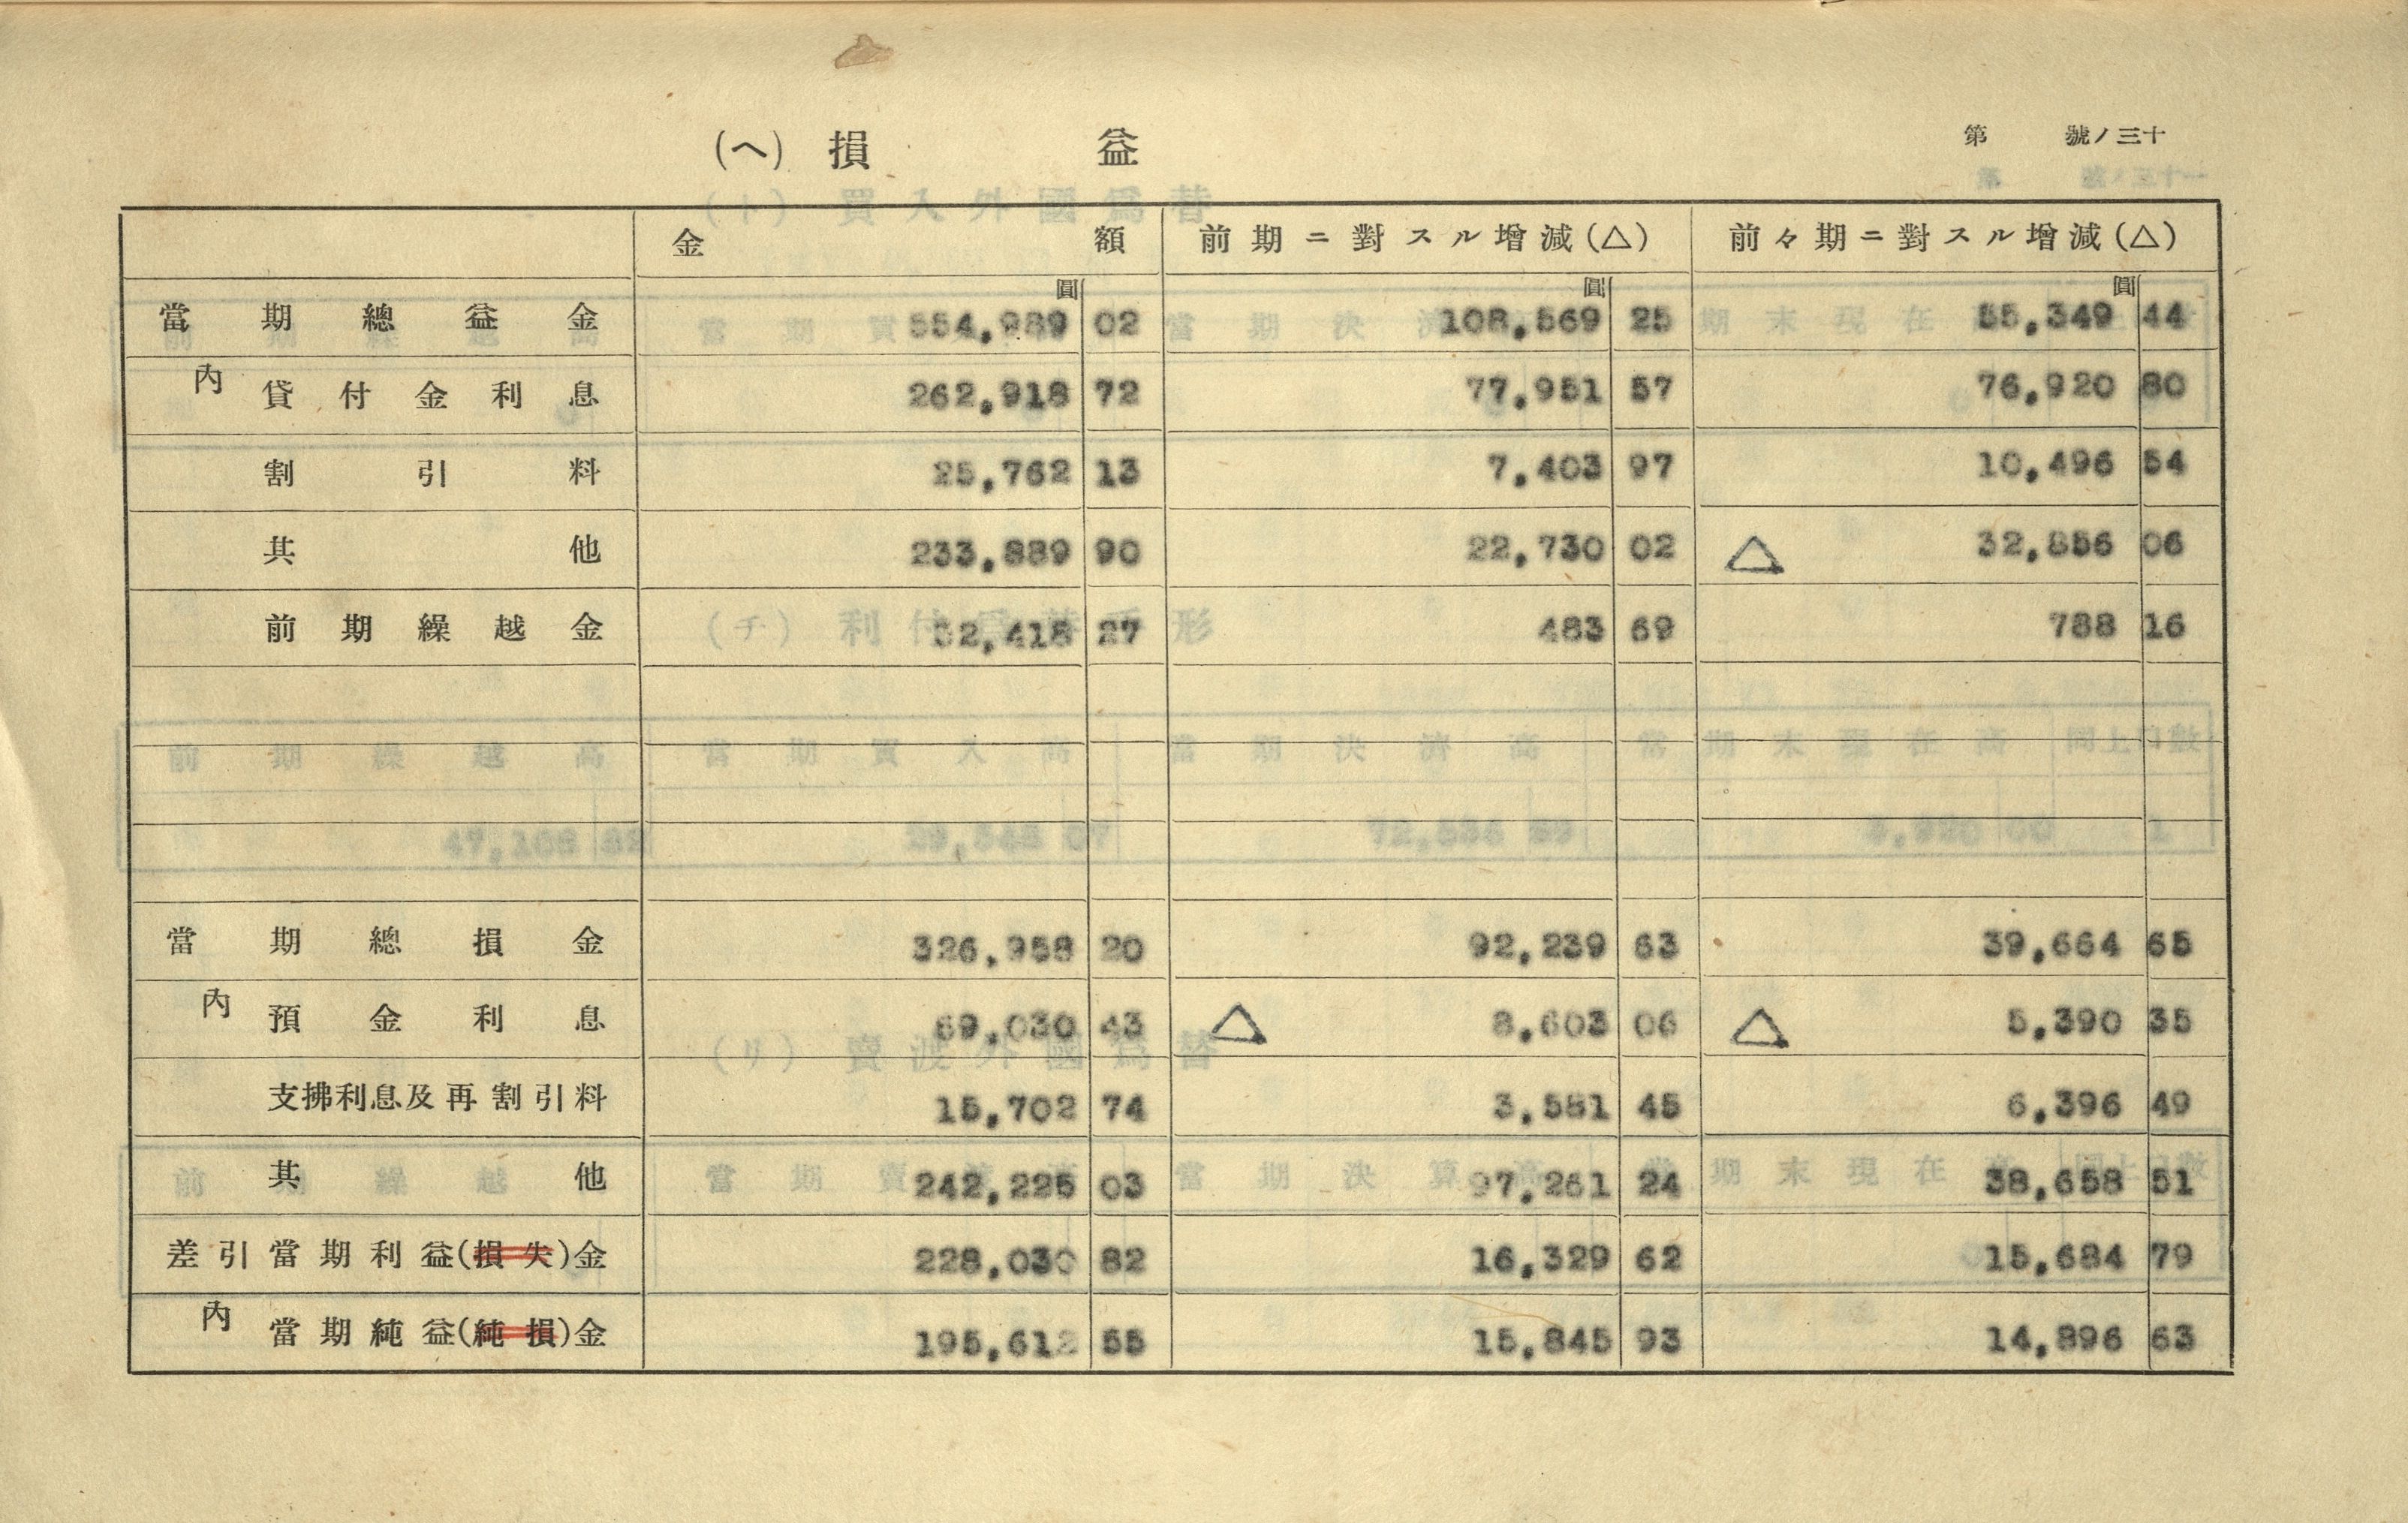 第　號ノ三十
(ヘ) 損　益
金　額　前期ニ對スル增減(△)　前々期ニ對スル增減(△)
圓　圓　圓
當期總益金　554,989 02　108,569 25　55,349 44
內 貸付金利息　262,918 72　77,951 57　76,920 80
割引料　25,762 13　7,403 97　10,496 54
其他　233,889 90　22,730 02　△ 32,856 06
前期繰越金　32,418 27　483 69　788 16
當期總損金　326,958 20　92,239 63　39,664 65
內 預金利息　69,030 43　△ 8,603 06　△ 5,390 35
支拂利息及再割引料　15,702 74　3,581 45　6,396 49
其他　242,225 03　97,261 24　38,658 51
差引當期利益(損失)金　228,030 82　16,329 62　15,684 79
內 當期純益(純損)金　195,612 55　15,845 93　14,896 63